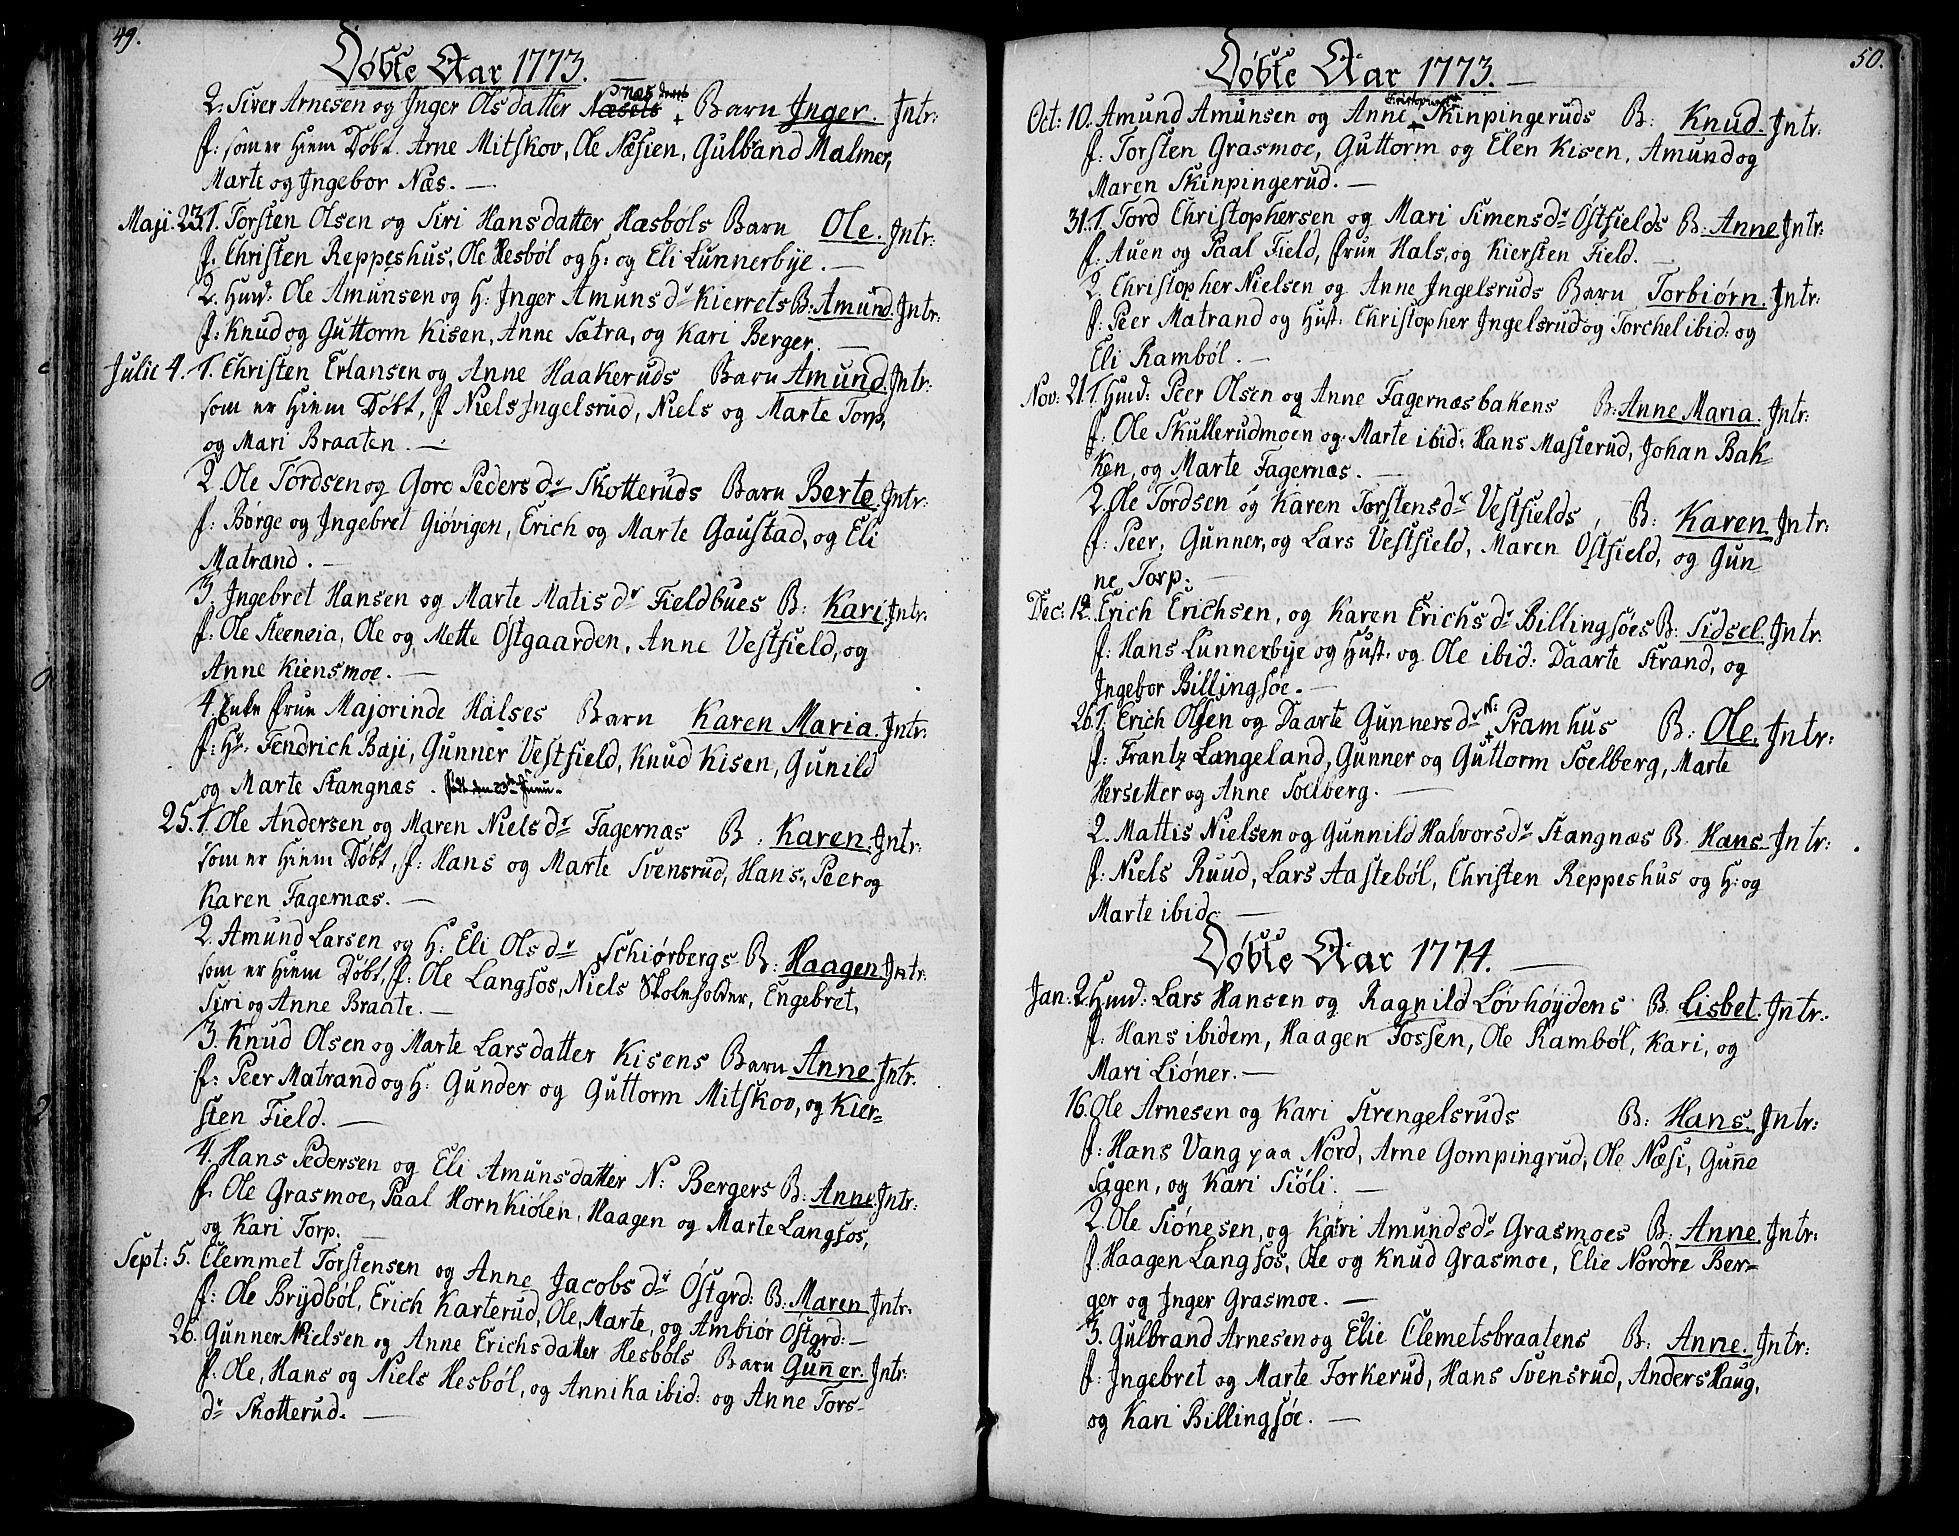 49.
Døbte Aar 1773. —
2. Siver Arnesen og Inger Olsdatter Næsets + Barn Inger. Intr:
f: som er hiem Døbt. Arne Mitskov, Ole Næsien, Gulband Malmer,
Marte og Ingebor Næs. —
Maji. 23. 1. Torsten Olsen og Siri Hansdatter Hæsböls Barn Ole. Intr:
f. Christen Reppeshus, Ole Hesböl og H: og Eli Lunnerbÿe. —
2. Huud: Ole Amunsen og H: Inger Amuns dr Kierrets B: Amund. Intr:
f: Knud og Guttorm Kisen, Anne Sætra, og Kari Berger. —
Julie 4. 1. Christen Erlansen og Anne Haakeruds Barn Amund. Intr:
som er hiem Døbt, f Niels Ingelsrud, Niels og Marte Torp,
og Mari Braaten. —
2. Ole Tordsen og Goro Peders dr Skotteruds Barn Berte. Intr:
f: Børge og Ingebret Giövigen, Erich og Marte Gaustad, og Eli
Matrand. —
3. Ingebret Hansen og Marte Matis dr Fieldbues B: Kari. Intr:
f: Ole Steeneia, Ole og Mette Östgaarden, Anne Vestfield, og
Anne Kiensmoe. —
4. Enke Frue Majorinde Halses Barn Karen Maria. Intr:
f: Hr. Fendrich Baji, Gunner Vestfield, Knud Kisen, Gunild
og Marte Stangnæs.
25. 1. Ole Andersen og Maren Niels dr Fagernæs B: Karen. Intr:
som er hiem Døbt, f: Hans og Marte Svensrud, Hans, Peer og
Karen Fagernæs. —
2. Amund Larsen og H: Eli Ols dr Schiørbergs B: Haagen. Intr:
som er hiem Døbt, f: Ole Langsös, Niels Skoleholder, Engebret,
Siri og Anne Braate. —
3. Knud Olsen og Marte Larsdatter Kisens Barn Anne. Intr.
f: Peer Matrand og H: Gunder og Guttorm Mitskov, og Kier=
sten Field. —
4. Hans Pedersen og Eli Amunsdatter N: Bergers B: Anne. Intr:
f. Ole Grasmoe, Paal Hornkiölen, Haagen og Marte Langsös,
og Kari Torp. —
Sept: 5. Clemmet Torstensen og Anne Jacobs dr Östgrd: B. Maren. Intr:
f: Ole Brÿdböl, Erich Karterud, Ole, Marte, og Ambiör Östgrd: —
26. Gunner Nielsen og Anne Erichsdatter Hesböls Barn Gun̄er. Intr:
f: Ole, Hans og Niels Hesböl, og Annika ibid: og Anne Tors-
dr Skotterud. —
50.
Døbte Aar 1773. —
Oct: 10. Amund Amunsen og Anne + Skinpingeruds B: Knud. Intr:
f: Torsten Grasmoe, Guttorm og Elen Kisen, Amund og
Maren Skinpingerud. —
31. 1. Tord Christophersen og Mari Simens dr Östfields B: Anne Intr:
f: Auen og Paal Field, Frue Hals, og Kiersten Field. —
2. Christopher Nielsen og Anne Ingelsruds Barn Torbiørn. Intr:
f: Peer Matrand og Hust: Christopher Ingelsrud og Torchel ibid: og
Eli Ramböl. —
Nov: 21. 1. Huud: Peer Olsen og Anne Fagernæsbakens B: Anne Maria. Intr:
f: Ole Skullerudmoen og Marte ibid: Hans Masterud, Johan Bak-
ken, og Marte Fagernæs. —
2. Ole Tordsen og Karen Torstens dr Vestfields, B: Karen. Intr:
f: Peer, Gunner, og Lars Vestfield, Maren Östfield, og Gun-
ne Torp. —
Dec: 12. Erich Erichsen, og Karen Erichs dr Billingsöes B: Sidsel. Intr:
f: Hans Lunnerbÿe og Hust: og Ole ibid: Daarte Strand, og
Ingebor Billingsöe. —
26. 1. Erich Olsen og Daarte Gunners dr N: + Pramhus B: Ole. Intr:
f: Frantz Langeland, Gunner og Guttorm Soelberg, Marte
Hersetter og Anne Soelberg. —
2. Mattis Nielsen og Gunnild Halvors dr Stangnæs B. Hans. Intr:
f: Niels Ruud, Lars Aasteböl, Christen Reppeshus og H: og
Marte ibid. —
Døbte Aar 1774. —
Jan: 2. Huud: Lars Hansen og Ragnild Lövhöÿdens B. Lisbet. Intr:
f: Hans ibidem, Haagen Fossen, Ole Ramböl, Kari, og
Mari Liöner. —
16. Ole Arnesen og Kari Strengelsruds B: Hans. Intr:
f: Hans Vang paa Nord, Arne Gompingrud, Ole Næsi, Gun̄e
Sagen, og Kari Siöli. —
2. Ole Siönesen, og Kari Amunds dr Grasmoes B: Anne. Intr:
f: Haagen Langsös, Ole og Knud Grasmoe, Elie Nordre Ber-
ger og Inger Grasmoe. —
3. Gulbrand Arnesen og Elie Clemetsbraatens B: Anne. Intr:
f: Ingebret og Marte Forkerud, Hans Svensrud, Anders Haug,
og Kari Billingsöe. —